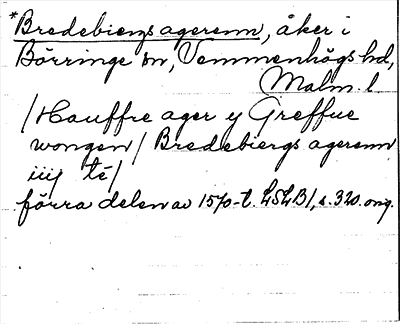 *Bredebiergs agerenn, åker i
Börringe sn, Vemmenhögs hd,
Malm. l
/Hauffre ager y Greffue
wongen/ Bredebiergs agerenn
iiij te/
förra delen av 1570-t. LSLB1, s. 320. orig.